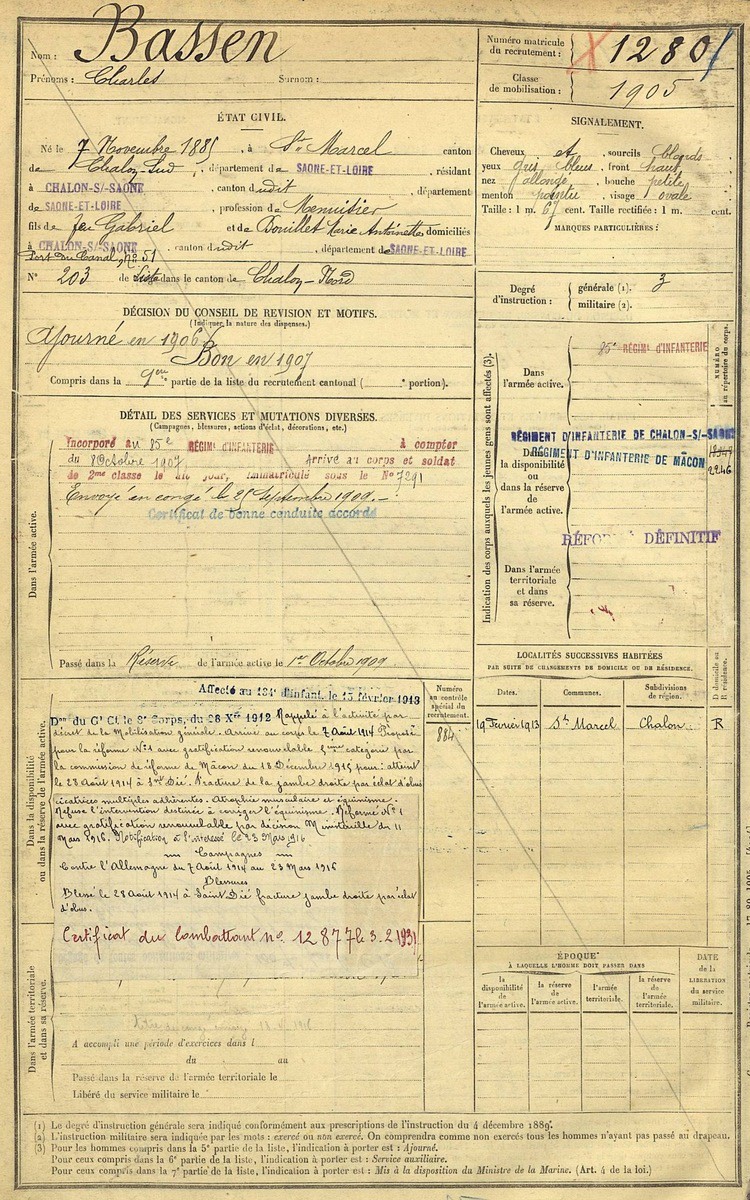 Nom : Bassen
Prénoms : Charles Surnom :
ÉTAT CIVIL.
Né le 7 Novembre 1885, à St Marcel canton
de Chalon-Sud, département de SAONE-ET-LOIRE, résidant
à CHALON-S/-SAONE, canton dudit, département
de SAONE-ET-LOIRE, profession de Menuisier
fils de feu Gabriel et de Douillet Marie Antoinette domiciliés
à CHALON-S/-SAONE, canton dudit, département de SAONE-ET-LOIRE
Port du Canal, no 51
N° 203 de Liste dans le canton de Chalon-Nord
DÉCISION DU CONSEIL DE REVISION ET MOTIFS.
(Indiquer la nature des dispenses.)
Ajourné en 1906
Bon en 1907
Compris dans la partie de la liste du recrutement cantonal ( portion).
DÉTAIL DES SERVICES ET MUTATIONS DIVERSES.
(Campagnes, blessures, actions d'éclat, décorations, etc.)
Dans l'armée active.
Incorporé au 85e RÉGIMt D'INFANTERIE à compter
du 8 Octobre 1907 Arrivé au corps et soldat
de 2me classe le dit jour, immatriculé sous le No 7291
Envoyé en congé le 25 Septembre 1909.
Certificat de bonne conduite accordé
Passé dans la Réserve de l'armée active le 1er Octobre 1909.
Dans la disponibilité
ou dans la réserve de l'armée active.
Numéro
au contrôle
spécial du
recrutement.
884
Affecté au 134e d'infant. le 15 février 1913
Don du Gl Ct le 8e Corps, du 26 Xbre 1912 Rappelé à l'activité par
décret de la Mobilisation générale. Arrivé au corps le 7 Août 1914 Proposé
pour la réforme No 1 avec gratification renouvelable 5ème catégorie par
la commission de réforme de Mâcon du 18 Décembre 1915 pour : atteint
le 28 Août 1914 à St Dié. Fracture de la jambe droite par éclat d'obus
cicatrices multiples adhérentes. Atrophie musculaire et équinisme.
Refuse l'intervention destinée à corriger l'équinisme. Réformé No 1
avec gratification renouvelable par décision Ministérielle du 11
Mars 1916. Notification à l'intéressé le 23 Mars 1916
Campagnes
Contre l'Allemagne du 7 Août 1914 au 23 Mars 1916
Blessures
Blessé le 28 Août 1914 à Saint Dié fracture jambe droite par éclat
d'obus.
Certificat du Combattant no 12877 le 3.2.1931
Dans l'armée territoriale
et dans sa réserve.
A accompli une période d'exercices dans l
du au
Passé dans la réserve de l'armée territoriale le
Libéré du service militaire le
Numéro matricule
du recrutement : 1280
Classe
de mobilisation : 1905
SIGNALEMENT.
Cheveux et, sourcils blonds
yeux gris bleus, front haut
nez allongé, bouche petite
menton pointu, visage ovale
Taille : 1 m. 67 cent. Taille rectifiée : 1 m. cent.
MARQUES PARTICULIÈRES :
Degré
d'instruction : générale (1). 3
militaire (2).
Indication des corps auxquels les jeunes gens sont affectés (3).
NUMÉRO
au répertoire du corps.
Dans
l'armée active.
85e RÉGIMt D'INFANTERIE
RÉGIMENT D'INFANTERIE DE CHALON-S/-SAONE
RÉGIMENT D'INFANTERIE DE MÂCON
2246
Dans
la disponibilité
ou dans la réserve
de l'armée active.
RÉFORMÉ DÉFINITIF
Dans l'armée
territoriale
et dans
sa réserve.
LOCALITÉS SUCCESSIVES HABITÉES
PAR SUITE DE CHANGEMENTS DE DOMICILE OU DE RÉSIDENCE.
Dates. Communes. Subdivisions de région. D domicile ou R résidence.
19 Février 1913 St Marcel Chalon R
ÉPOQUE
À LAQUELLE L'HOMME DOIT PASSER DANS
la disponibilité de l'armée active. la réserve de l'armée active. l'armée territoriale. la réserve de l'armée territoriale.
DATE de la LIBÉRATION du service militaire.
(1) Le degré d'instruction générale sera indiqué conformément aux prescriptions de l'instruction du 4 décembre 1889.
(2) L'instruction militaire sera indiquée par les mots : exercé ou non exercé. On comprendra comme non exercés tous les hommes n'ayant pas passé au drapeau.
(3) Pour les hommes compris dans la 5e partie de la liste, l'indication à porter est : Ajourné.
Pour ceux compris dans la 6e partie de la liste, l'indication à porter est : Service auxiliaire.
Pour ceux compris dans la 7e partie de la liste, l'indication à porter est : Mis à la disposition du Ministre de la Marine. (Art. 4 de la loi.)